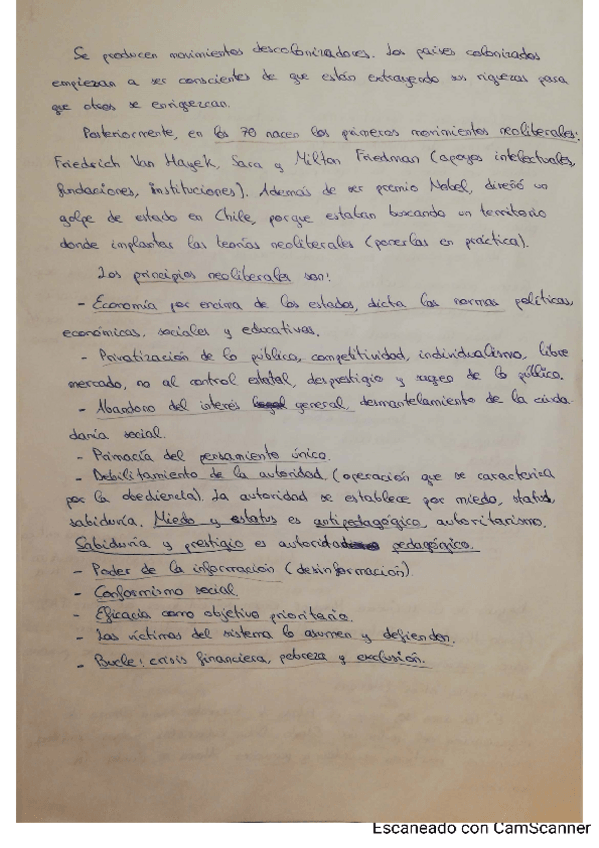 Se producen movimientos descolonizadores. Los países colonizados
empiezan a ser conscientes de que están extrayendo sus riquezas para
que otros se enriquezcan.
Posteriormente, en los 70 nacen los primeros movimientos neoliberales:
Friedrich Van Hayek, Sara y Milton Friedman (apoyos intelectuales,
fundaciones, instituciones). Además de ser premio Nobel, diseñó un
golpe de estado en Chile, porque estaban buscando un territorio
donde implantar las teorías neoliterales (ponerlas en práctica).
Los principios neoliberales son:
- Economía por encima de los estados, dicta las normas políticas,
económicas, sociales y educativas.
- Privatización de lo público, competitividad, individualismo, libre
mercado, no al control estatal, desprestigio y saqueo de lo público.
- Abandono del interés general, desmantelamiento de la ciuda-
danía social.
- Primacía del pensamiento único.
- Debilitamiento de la autoridad. (operación que se caracteriza
por la obediencia). La autoridad se establece por miedo, status,
sabiduría. Miedo y estatus es antipedagógico, autoritarismo.
Sabiduría y prestigio es autoridad pedagógica.
- Poder de la información (desinformación).
- Conformismo social.
- Eficacia como objetivo prioritario.
- Las víctimas del sistema lo asumen y defienden.
- Bucle: crisis financiera, pobreza y exclusión.
Escaneado con CamScanner